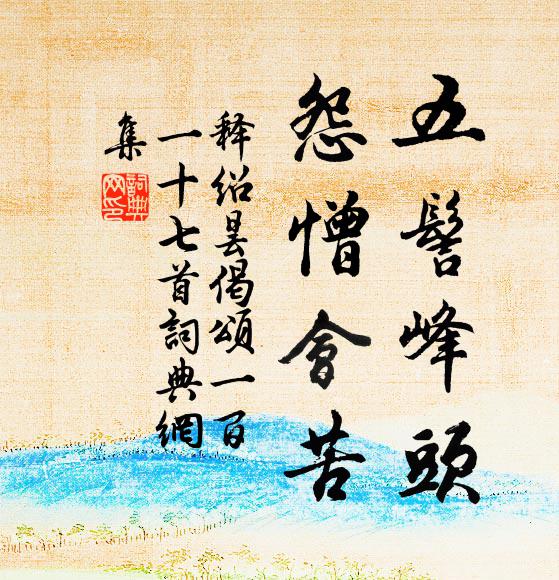 五髻峰頭
怨憎會苦
释绍昙偈頌一百
一十七首詞典網
集
詞典網印